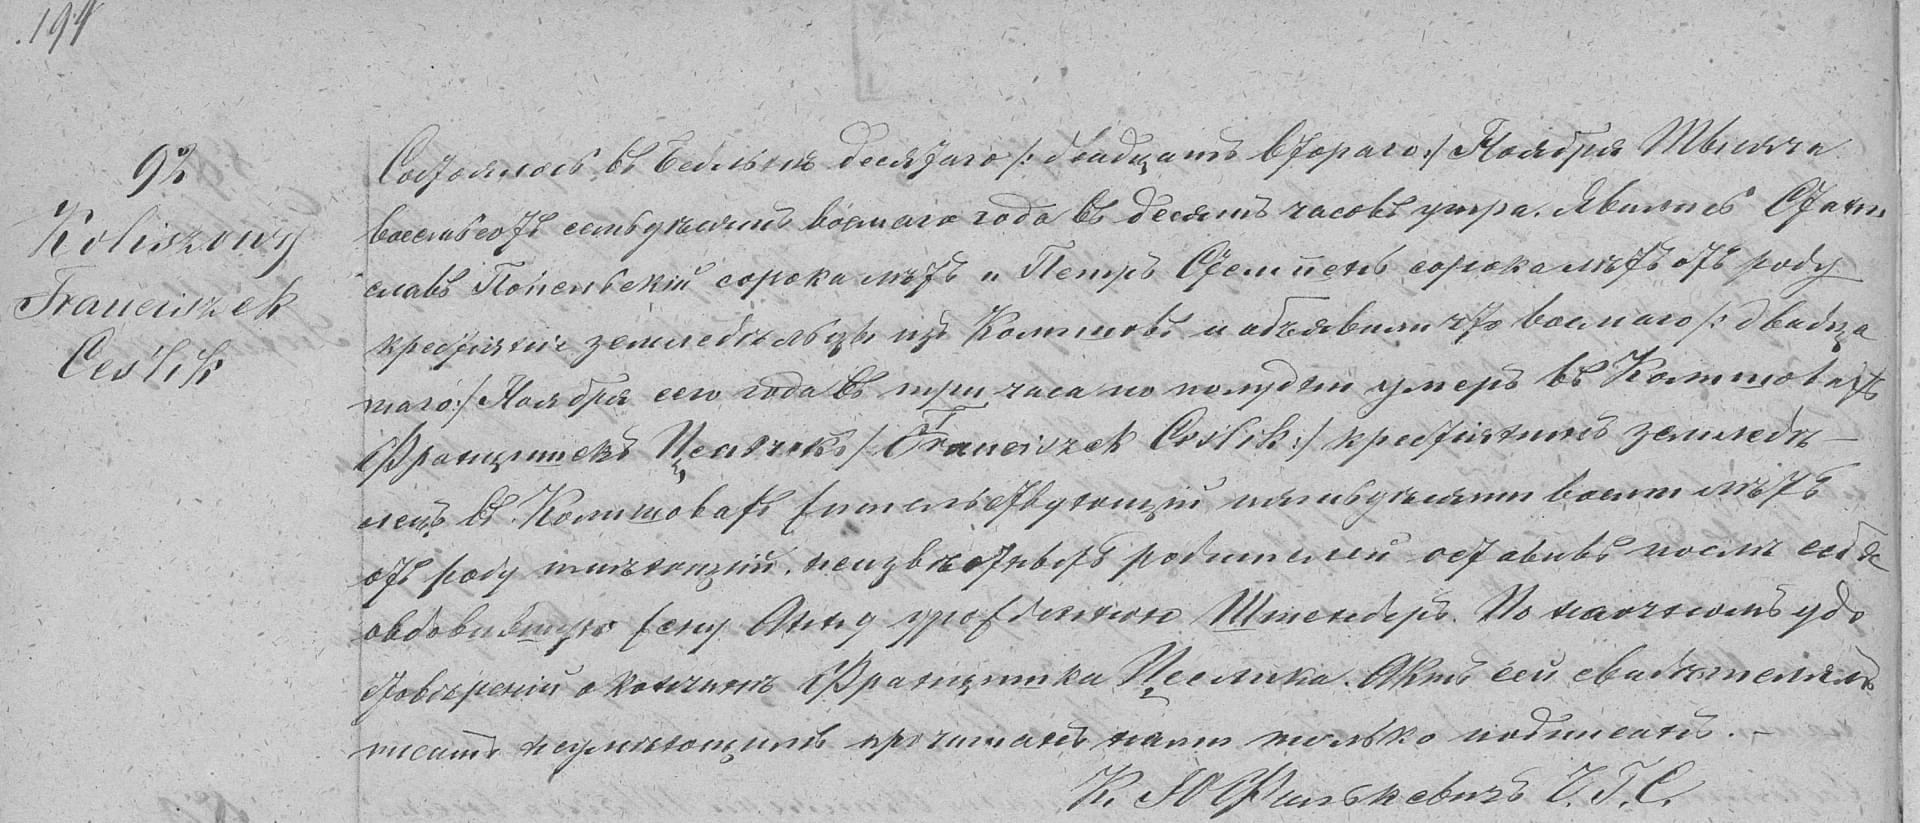 194
92
Koliszowy
Franciszek
Ceślik
Состоялось въ Бейсъ десятаго /: двадцать втораго :/ Ноября Тысяча
восемьсотъ семьдесятъ восьмаго года въ десять часовъ утра. Явились Стани
славъ Попельскій сорока лѣтъ и Петръ Стемпень сорока лѣтъ отъ роду
крестьяне земледѣльцы изъ Колишовъ и объявили что восьмаго /: двадца
таго :/ Ноября сего года въ три часа по полудни умеръ въ Колишовахъ
Францишекъ Цесликъ /: Franciszek Ceślik :/ крестьянинъ земледѣ–
лецъ въ Колишовахъ жительствующій пятьдесятъ восемь лѣтъ
отъ роду имѣющій, неизвѣстныхъ родителей оставивъ послѣ себя
овдовѣвшую жену Анну урожденную Штендеръ. По наочномъ удо
стовѣреніи о кончинѣ Францишка Цеслика. Актъ сей свидѣтелямъ
писать неумѣющимъ прочитанъ нами только подписанъ. –
К. Ю Фалькевичъ Ч. Г. С.